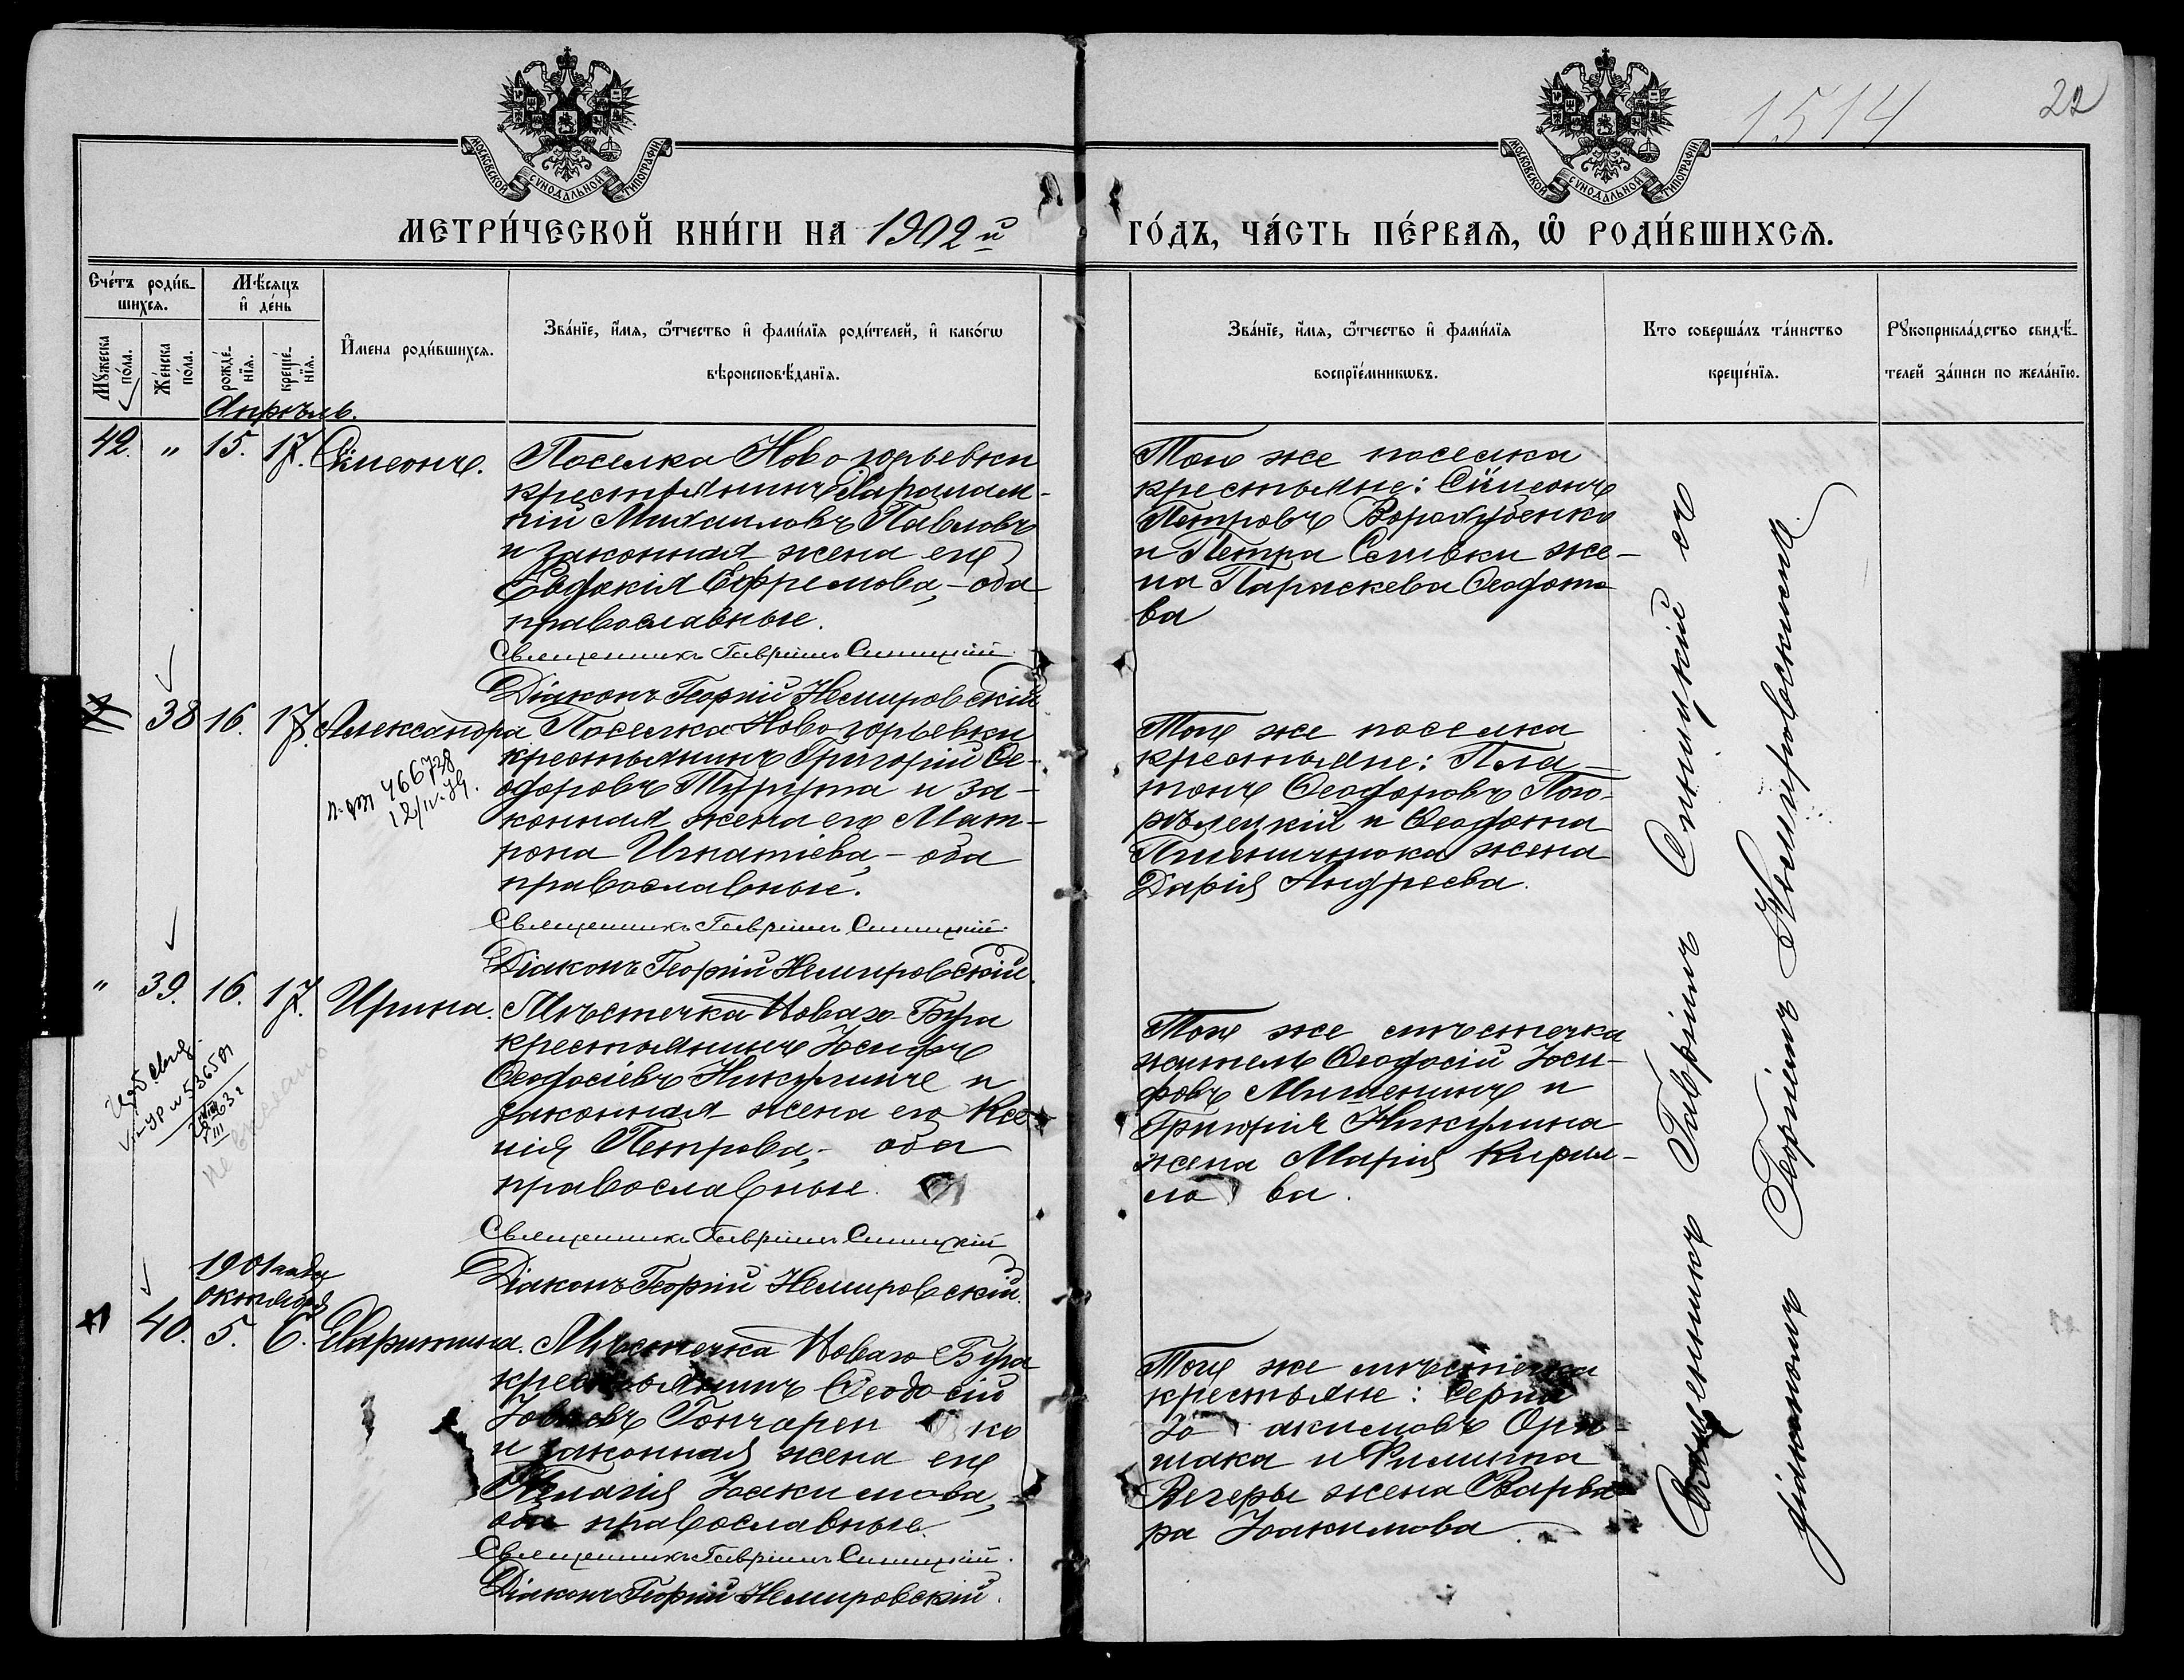 1514
22
МОСКОВСКОЙ СУНОДАЛЬНОЙ ТИПОГРАФІИ
МОСКОВСКОЙ СУНОДАЛЬНОЙ ТИПОГРАФІИ
МЕТРИ́ЧЕСКОЙ КНИ́ГИ НА 1902 й
ГО́ДЪ, ЧА́СТЬ ПЕ́РВАѦ, Ѡ҆ РОДИ́ВШИХСѦ.
Сче́тъ роди́в-
шихсѧ.
Мѣ́сѧцъ
и҆ де́нь
Мꙋ́жеска по́ла.
Же́нска по́ла.
рожде́-нїѧ.
креще́-нїѧ.
И҆мена роди́вшихсѧ.
Зва́нїе, и҆́мѧ, ѻ҆́тчество и҆ фами́лїѧ роди́телей, и҆ како́гѡ
вѣроисповѣ́данїѧ.
Зва́нїе, и҆́мѧ, ѻ҆́тчество и҆ фами́лїѧ
воспрїе́мникѡвъ.
Кто соверша́лъ та́инство
креще́нїѧ.
Рꙋкоприкла́дство свидѣ́-
телей за́писи по жела́нїю.
Апрѣль.
42. " 15. 17. Сѵмеонъ.
Поселка Новогорьевки
крестьянинъ Харалам-
пій Михаиловъ Павловъ
и законная жена его
Евдокія Ефремова, - оба
православные.
Священникъ Гавріилъ Синицкій.
Діаконъ Георгій Немировскій
Того же поселка
крестьяне: Сѵмеонъ
Петровъ
и Петра Сливки же-
на Параскева Ѳеодото
ва
38 16. 17. Александра
Поселка Новогорьевки
крестьянинъ Григорій Ѳе-
одоровъ и за-
конная жена его Мат-
рона Игнатіева, - оба
православные.
Священникъ Гавріилъ Синицкій.
Діаконъ Георгій Немировскій.
466738
12/IV-39.
Того же поселка
крестьяне: Пла-
тонъ Ѳеодоровъ Пого-
рѣлецкій и Ѳеодота
Пшеничнюка жена
Дарія Андреева.
" 39. 16. 17. Ирина.
Мѣстечка Новаго-Буга
крестьянинъ Іосифъ
Ѳеодосіевъ Никулинъ и
законная жена его Ксе
нія Петрова, - оба
православные.
Священникъ Гавріилъ Синицкій
Діаконъ Георгій Немировскій.
Того же мѣстечка
житель Ѳеодосій Іоси-
фовъ Мишенинъ и
Григорія Никулина
жена Марія Кирил-
лова.
1901 года
октября
40. 5. 6. Харитина.
Мѣстечка Новаго-Буга
крестьянинъ Ѳеодосій
Іовлевъ Гончаренко
и законная жена его
Пелагія Іоакимова,-
оба православные.
Священникъ Гавріилъ Синицкій.
Діаконъ Георгій Немировскій.
Того же мѣстечка
крестьяне: Сергій
Іоакимовъ Ори-
шака и Филиппа
Вечеры жена Варва
ра Іоакимова
Священникъ Гавріилъ Синицкій съ
діакономъ Георгіемъ Немировскимъ.